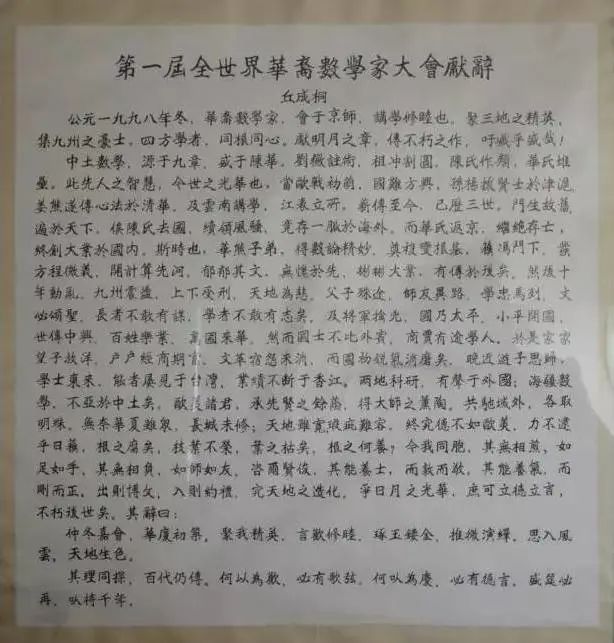 第一屆全世界華裔數學家大會獻辭
丘成桐
公元一九九八年冬，華裔數學家，會于京師，講學修睦也。聚三地之精英，
集九州之豪士。四方學者，同根同心。獻明月之章，傳不朽之作，吁盛乎盛哉！
中土數學，源于九章，盛于陳華。劉徽註術，祖冲割圓。陳氏作類，華氏堆
壘。此先人之智慧，今世之光華也。當歐戰初萌，國難方興，孫禧拔賢士於津滬，
姜熊遂傳心法於清華，及雲南講學，江表立所。薪傳至今，已歷三世。門生故舊
遍於天下，陳氏去國，續領風騷，竟存一脈於海外。而華氏返京，繼絶存亡，
終創大業於國內。斯時也，華熊子弟，得數論精妙，莫複變根基，蘇馮門下，
方程微義，開計算先河，郁郁其文，無愧於先，彬彬大業，有傳於後矣。然後十
年動亂，九州震盪，上下受刑，天地為慈。父子殊途，師友異路，學忠馬列，文
必頌聖，長者不敢有謀，學者不敢有志矣，及將軍擒先，國乃太平，小平閉國，
世傳中興，百姓樂業，萬國來華。然而國士不比外賓，商賈有逾學人。於是家家
望子放洋，戶戶經商期官，文革宿怨未消，而國初銳氣消磨矣，晚近遊子思歸，
學士東來，能者屢見于台灣，業績不斷于香江。兩地科研，有聲于外國；海疆數
學，不亞於中土矣。歐美諸君，承先賢之餘蔭，得大師之薰陶。共馳域外，各取
明珠。無奈華夏雖衆，長城未修；天地雖寬，瑕疵難容。終究德不如歐美，力不逮
乎日蘇，根之腐矣，枝葉不榮，葉之枯矣，根之何養？令我同胞，其無相煎，如
足如手，其無相負，如師如友，咨爾賢俊，其能養士，而教而啟，其能養氣，而
剛而正。出則博文，入則約禮，究天地之造化，爭日月之光華，庶可立德立言，
不朽後世矣。其辭曰：
仲冬嘉會，華廈初築，聚我精英，言歡修睦，琢玉鏤金，推微演繹，思入風
雲，天地生色。
其理同探，百代仍傳。何以為歡，必有歌弦，何以為慶，必有德言，盛筵必
再，以待千年。